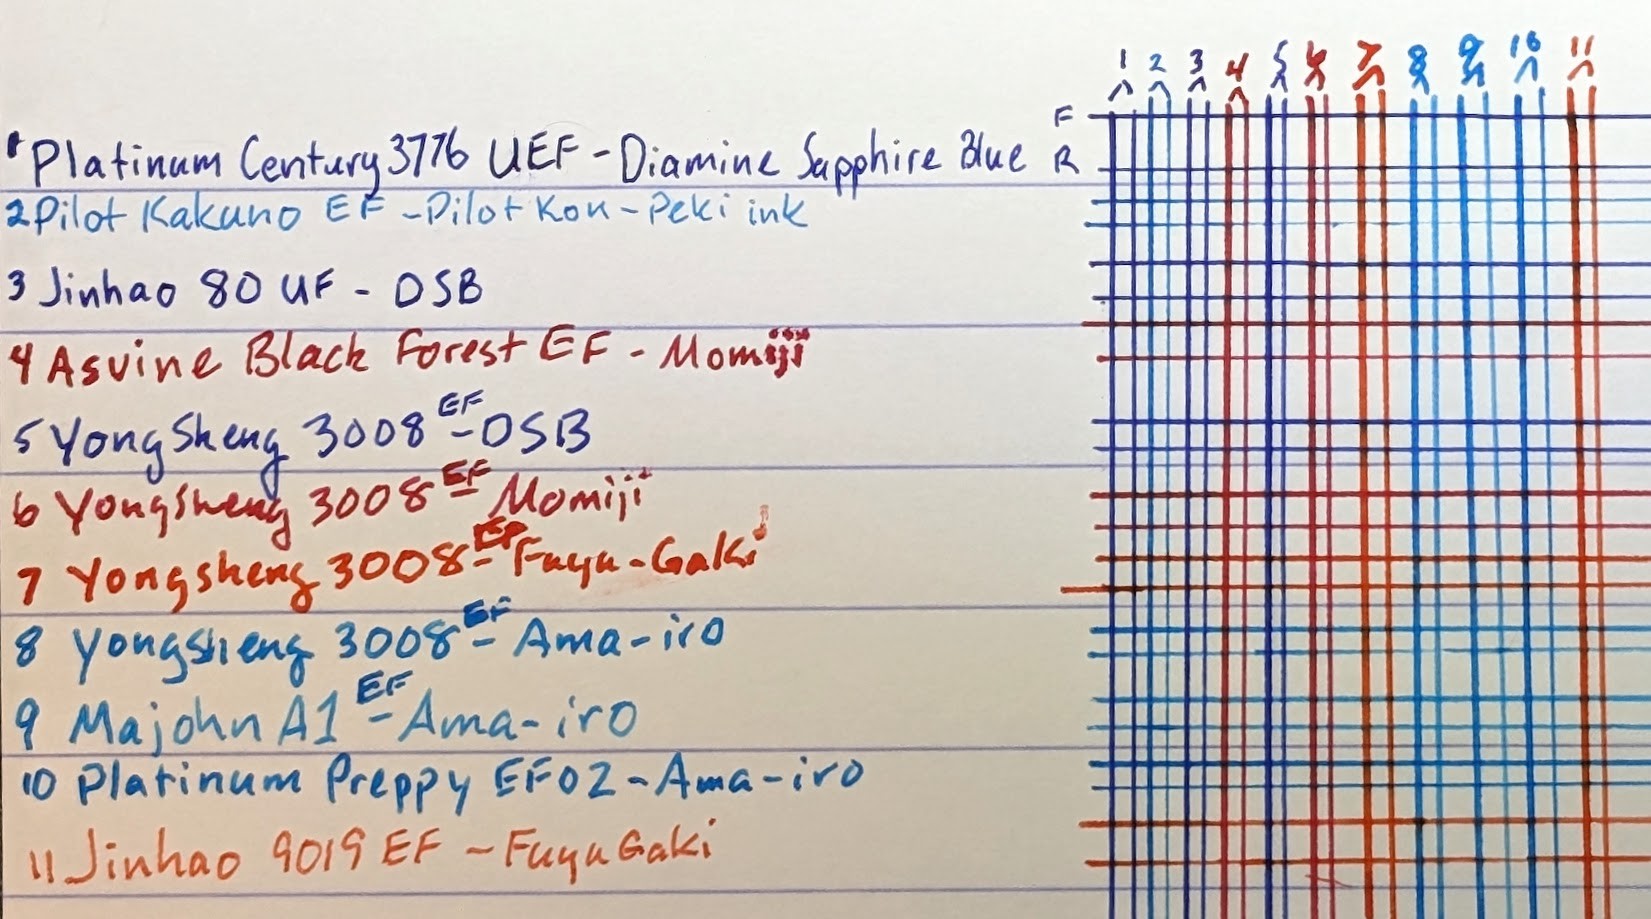 1 2 3 4 5 6 7 8 9 10 11
F
1 Platinum Century 3776 UEF - Diamine Sapphire Blue R
2 Pilot Kakuno EF - Pilot Kon-Peki ink
3 Jinhao 80 UF - DSB
4 Asvine Black Forest EF - Momiji
5 YongSheng 3008 EF - DSB
6 Yongsheng 3008 EF - Momiji
7 Yongsheng 3008 EF - Fuyu-Gaki
8 Yongsheng 3008 EF - Ama-iro
9 Majohn A1 EF - Ama-iro
10 Platinum Preppy EF02 - Ama-iro
11 Jinhao 9019 EF - Fuyu Gaki